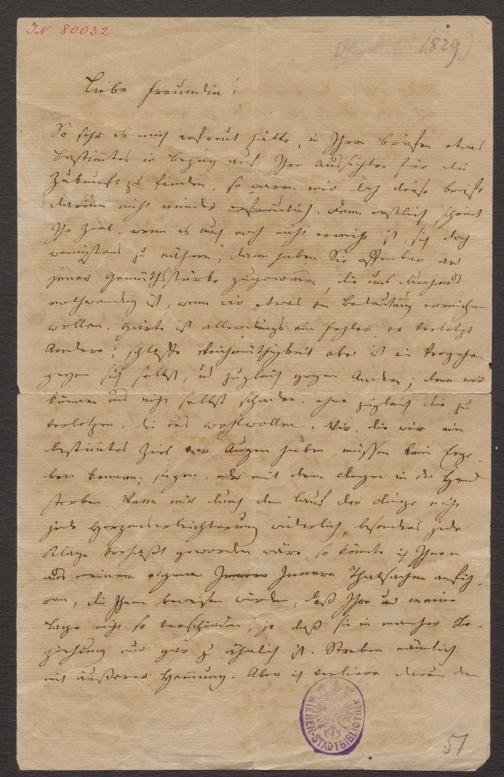 IN 80032
1829
Liebe Freundin!
So sehr es mich erfreut hätte, in Ihren Briefen etwas
Bestimmtes in Bezug auf Ihre Aussichten für die
Zukunft zu finden, so waren mir doch diese Briefe
darum nicht minder erfreulich. Denn erstlich scheint
Ihr Ziel, wenn es auch noch nicht erreicht ist, sich doch
wenigstens zu nähern; dann haben Sie offenbar an
jener Gemüthsstärke zugenommen, die uns
nothwendig ist, wenn wir etwas von Bedeutung erreichen
wollen. Härte ist allerdings ein Fehler, er verletzt
Andere; schlaffe Weichmüthigkeit aber ist ein Vergehen
gegen sich selbst, und zugleich gegen Andere; denn wir
können uns nicht selbst schaden, ohne zugleich die zu
verletzen, die uns wohlwollen. Wir, die wir ein
bestimmtes Ziel vor Augen haben müssen kein Erge-
ben kennen; siegen, oder mit dem Degen in der Hand
sterben. Wenn mir durch den Lauf der Dinge nicht
jede Herzenserleichterung widerlich, besonders jede
Klage verhaßt geworden wäre, so könnte ich Ihnen
aus meinem eigenen Innern Thatsachen anfüh-
ren, die Ihnen beweisen würden, daß Ihre und meine
Lage nicht so verschieden, ja daß sie in mancher Be-
ziehung nur gar zu ähnlich ist. Streben nämlich
mit äußerer Hemmung. Aber ich verliere darum den
WIENER-STADTBIBLIOTHEK
51